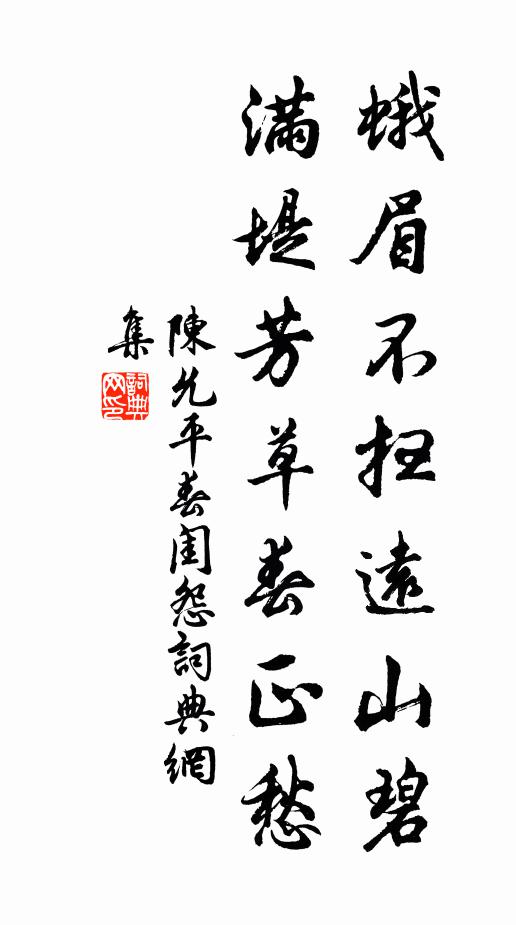 蛾眉不扫遠山碧
满堤芳草春正愁
陳允平春闺怨詞典網
集
詞典
网印